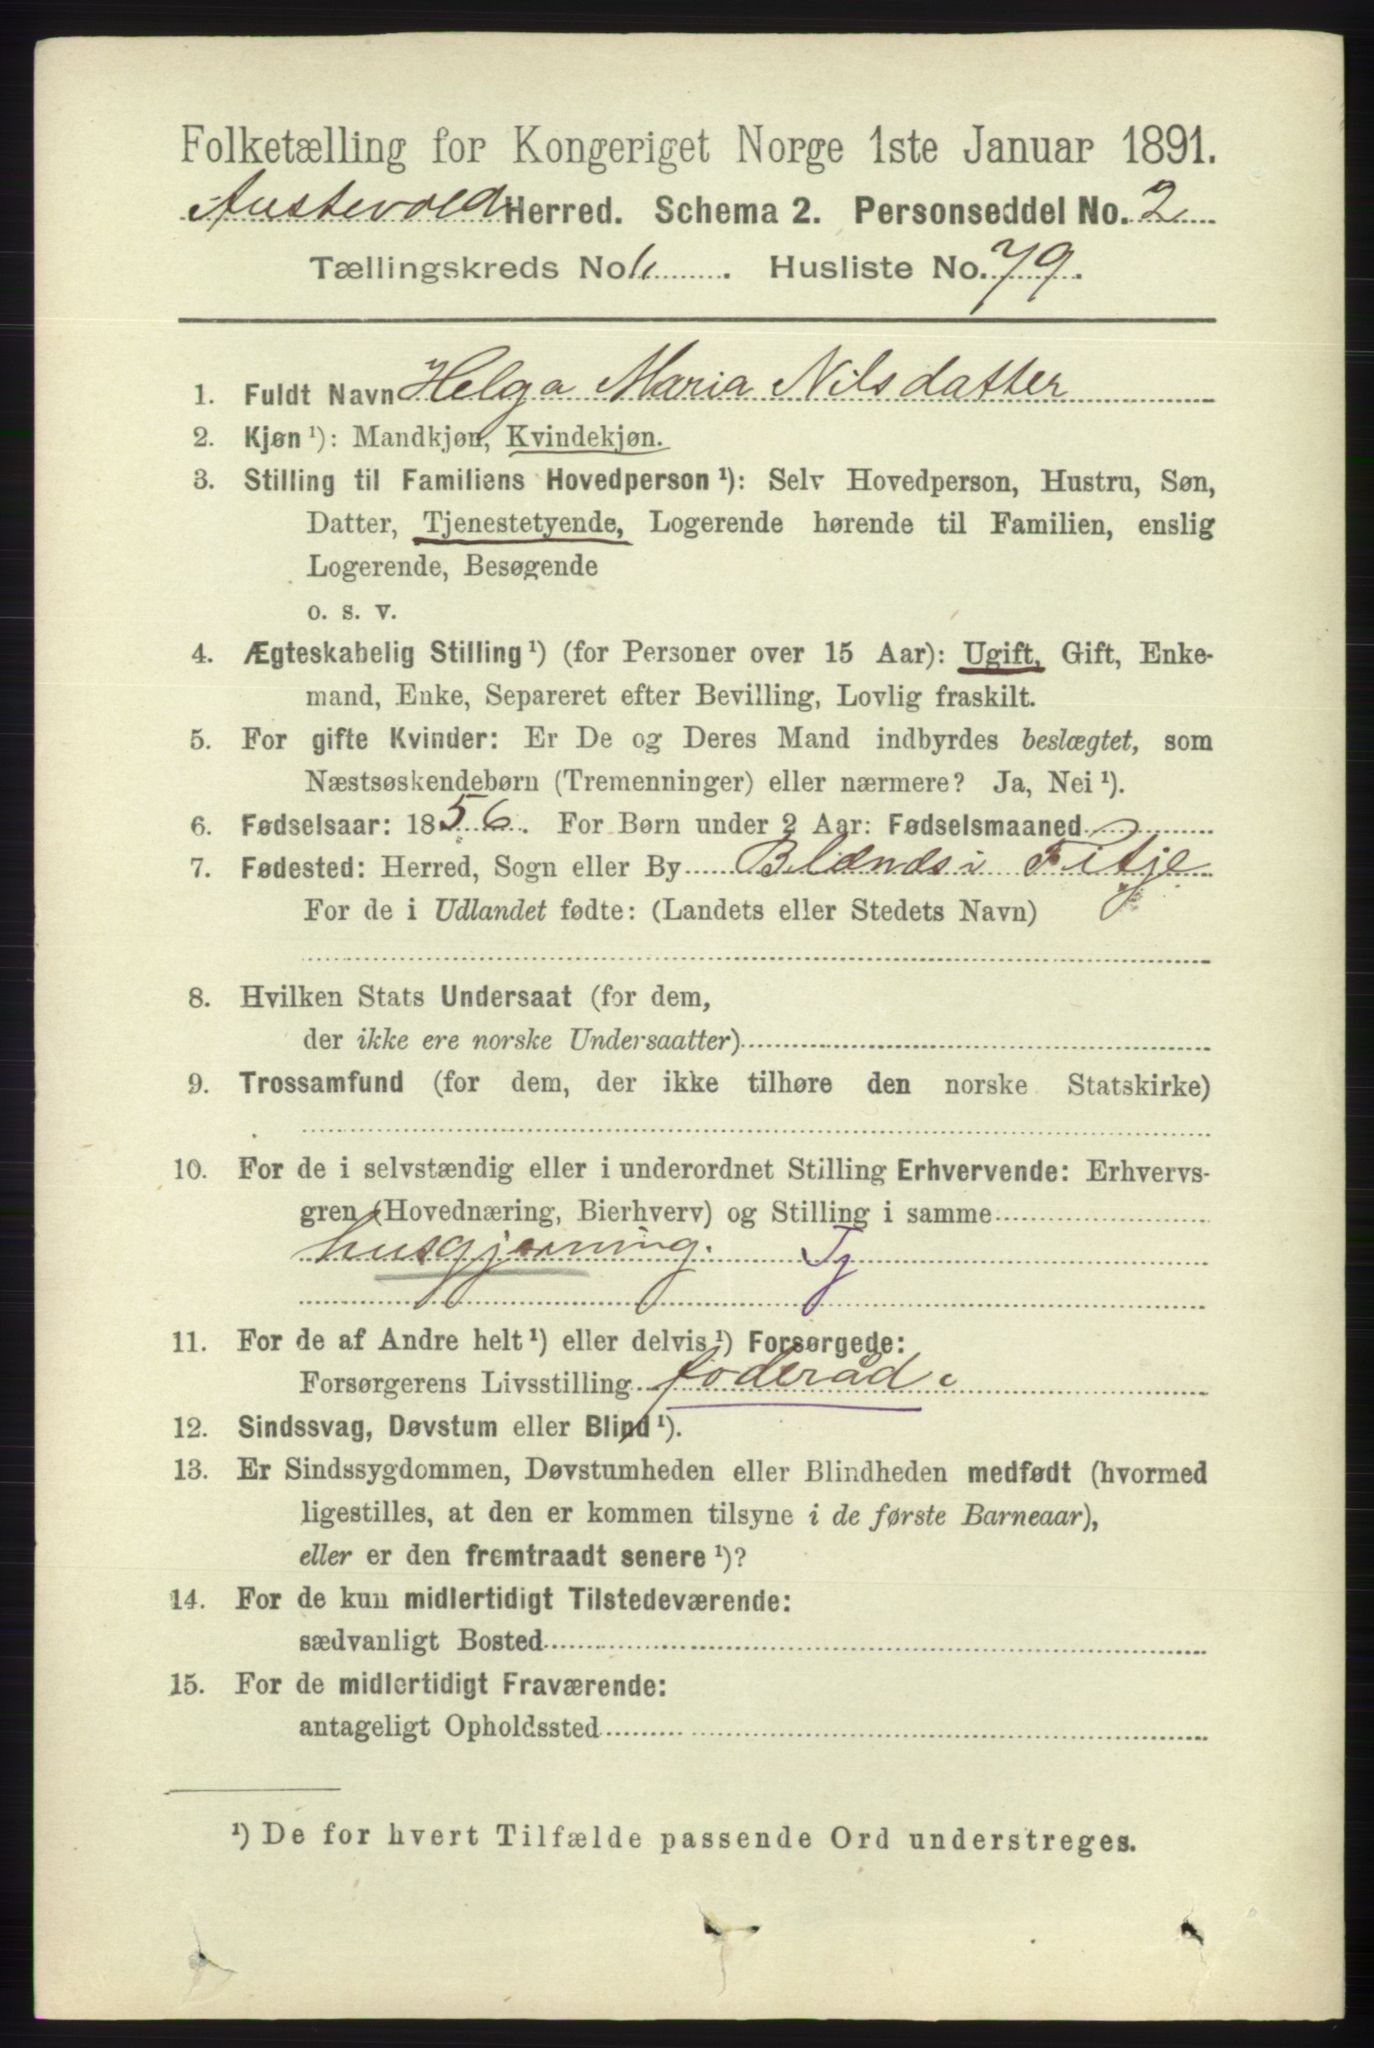 Folketælling for Kongeriget Norge 1ste Januar 1891.
Austevold Herred. Schema 2. Personseddel No. 2
Tællingskreds No. Husliste No. 79.
1. Fuldt Navn Helga Maria Nilsdatter
2. Kjøn ¹): Mandkjøn, Kvindekjøn.
3. Stilling til Familiens Hovedperson ¹): Selv Hovedperson, Hustru, Søn,
Datter, Tjenestetyende, Logerende hørende til Familien, enslig
Logerende, Besøgende
o. s. v.
4. Ægteskabelig Stilling ¹) (for Personer over 15 Aar): Ugift, Gift, Enke-
mand, Enke, Separeret efter Bevilling, Lovlig fraskilt.
5. For gifte Kvinder: Er De og Deres Mand indbyrdes beslægtet, som
Næstsøskendebørn (Tremenninger) eller nærmere? Ja, Nei ¹).
6. Fødselsaar: 1856. For Børn under 2 Aar: Fødselsmaaned
7. Fødested: Herred, Sogn eller By Blænæs i Fitje
For de i Udlandet fødte: (Landets eller Stedets Navn)
8. Hvilken Stats Undersaat (for dem,
der ikke ere norske Undersaatter)
9. Trossamfund (for dem, der ikke tilhøre den norske Statskirke)
10. For de i selvstændig eller i underordnet Stilling Erhvervende: Erhvervs-
gren (Hovednæring, Bierhverv) og Stilling i samme
husgjerning. Tj
11. For de af Andre helt ¹) eller delvis ¹) Forsørgede:
Forsørgerens Livsstilling foderåd
12. Sindssvag, Døvstum eller Blind ¹).
13. Er Sindssygdommen, Døvstumheden eller Blindheden medfødt (hvormed
ligestilles, at den er kommen tilsyne i de første Barneaar),
eller er den fremtraadt senere ¹)?
14. For de kun midlertidigt Tilstedeværende:
sædvanligt Bosted
15. For de midlertidigt Fraværende:
antageligt Opholdssted
¹) De for hvert Tilfælde passende Ord understreges.